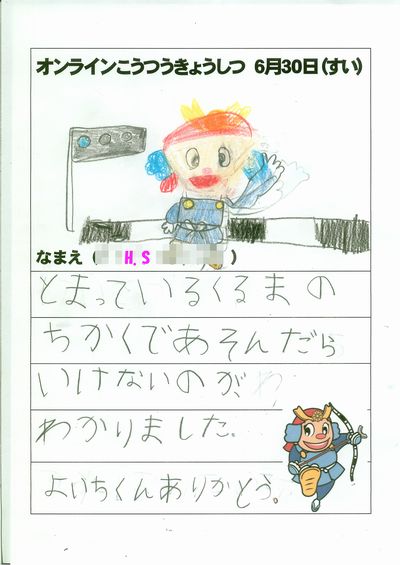 オンラインこうつうきょうしつ 6月30日(すい)
なまえ ( H.S )
とまっているくるまの
ちかくであそんだら
いけないのが、
わかりました。
よいちくんありがとう。